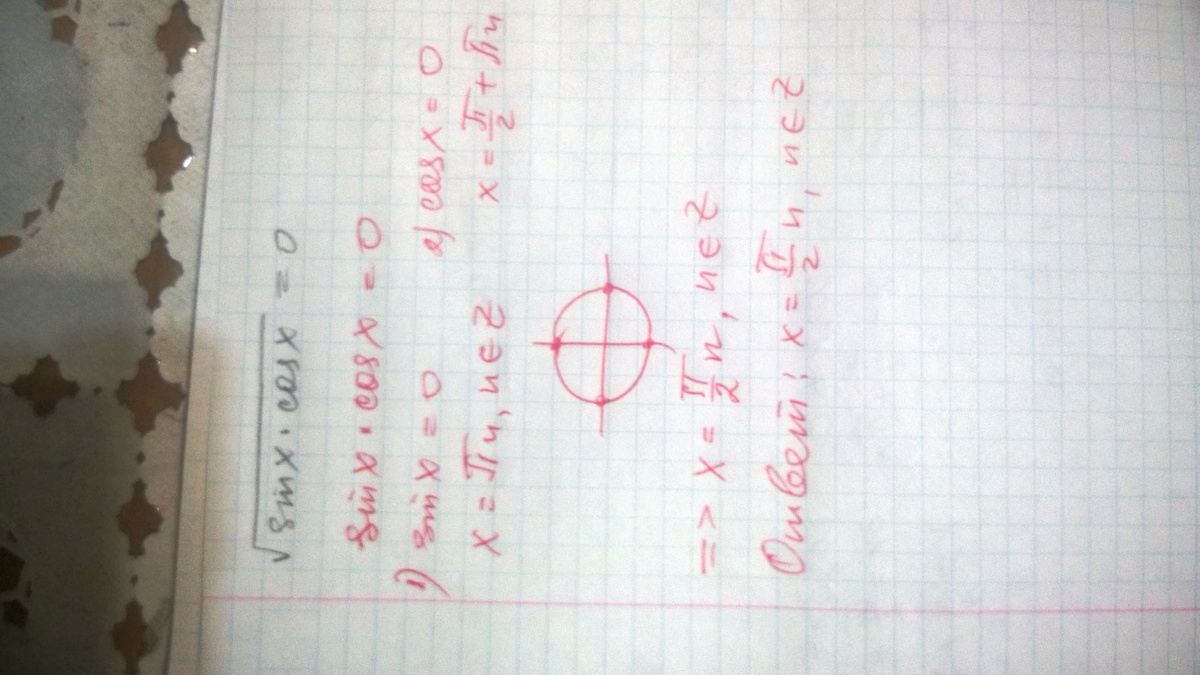 √(sin x · cos x) = 0
sin x · cos x = 0
1) sin x = 0 2) cos x = 0
x = πn, n ∈ Z x = π/2 + πn
=> x = π/2 n, n ∈ Z
Ответ: x = π/2 n, n ∈ Z